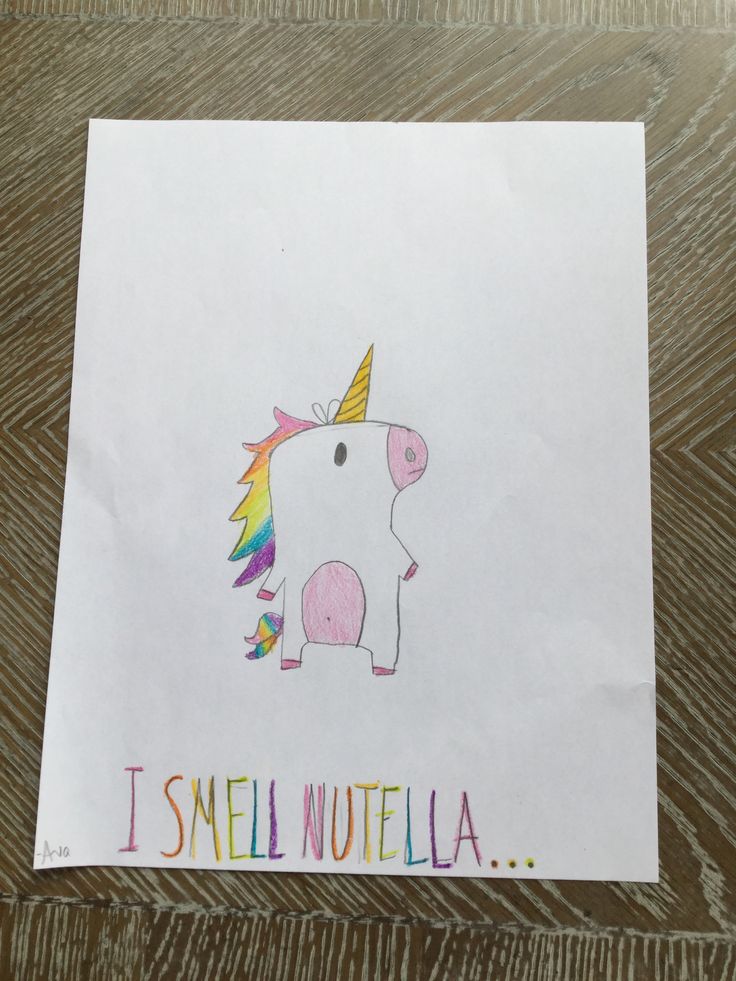 I SMELL NUTELLA...
-Ava